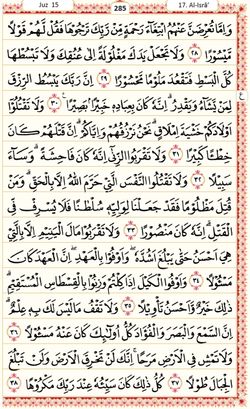 Juz 15 285 17. Al-Isrâ'
وَاِمَّا تُعْرِضَنَّ عَنْهُمُ ابْتِغَآءَ رَحْمَةٍ مِّنْ رَّبِّكَ تَرْجُوْهَا فَقُلْ لَّهُمْ قَوْلًا
مَّيْسُوْرًا ٢٨ وَلَا تَجْعَلْ يَدَكَ مَغْلُوْلَةً اِلٰى عُنُقِكَ وَلَا تَبْسُطْهَا
كُلَّ الْبَسْطِ فَتَقْعُدَ مَلُوْمًا مَّحْسُوْرًا ٢٩ اِنَّ رَبَّكَ يَبْسُطُ الرِّزْقَ
لِمَنْ يَّشَآءُ وَيَقْدِرُ ۗ اِنَّهٗ كَانَ بِعِبَادِهٖ خَبِيْرًا بَصِيْرًا ٣٠ وَلَا تَقْتُلُوْٓا
اَوْلَادَكُمْ خَشْيَةَ اِمْلَاقٍ ۗ نَحْنُ نَرْزُقُهُمْ وَاِيَّاكُمْ ۗ اِنَّ قَتْلَهُمْ كَانَ
خِطْـًٔا كَبِيْرًا ٣١ وَلَا تَقْرَبُوا الزِّنٰىٓ اِنَّهٗ كَانَ فَاحِشَةً ۗ وَسَآءَ
سَبِيْلًا ٣٢ وَلَا تَقْتُلُوا النَّفْسَ الَّتِيْ حَرَّمَ اللّٰهُ اِلَّا بِالْحَقِّ ۗ وَمَنْ
قُتِلَ مَظْلُوْمًا فَقَدْ جَعَلْنَا لِوَلِيِّهٖ سُلْطٰنًا فَلَا يُسْرِفْ فِّى
الْقَتْلِ ۗ اِنَّهٗ كَانَ مَنْصُوْرًا ٣٣ وَلَا تَقْرَبُوْا مَالَ الْيَتِيْمِ اِلَّا بِالَّتِيْ
هِيَ اَحْسَنُ حَتّٰى يَبْلُغَ اَشُدَّهٗ ۖ وَاَوْفُوْا بِالْعَهْدِ ۚ اِنَّ الْعَهْدَ كَانَ
مَسْـُٔوْلًا ٣٤ وَاَوْفُوا الْكَيْلَ اِذَا كِلْتُمْ وَزِنُوْا بِالْقِسْطَاسِ الْمُسْتَقِيْمِ ۗ
ذٰلِكَ خَيْرٌ وَّاَحْسَنُ تَأْوِيْلًا ٣٥ وَلَا تَقْفُ مَا لَيْسَ لَكَ بِهٖ عِلْمٌ ۗ
اِنَّ السَّمْعَ وَالْبَصَرَ وَالْفُؤَادَ كُلُّ اُولٰۤىِٕكَ كَانَ عَنْهُ مَسْـُٔوْلًا ٣٦
وَلَا تَمْشِ فِى الْاَرْضِ مَرَحًا ۚ اِنَّكَ لَنْ تَخْرِقَ الْاَرْضَ وَلَنْ تَبْلُغَ
الْجِبَالَ طُوْلًا ٣٧ كُلُّ ذٰلِكَ كَانَ سَيِّئُهٗ عِنْدَ رَبِّكَ مَكْرُوْهًا ٣٨